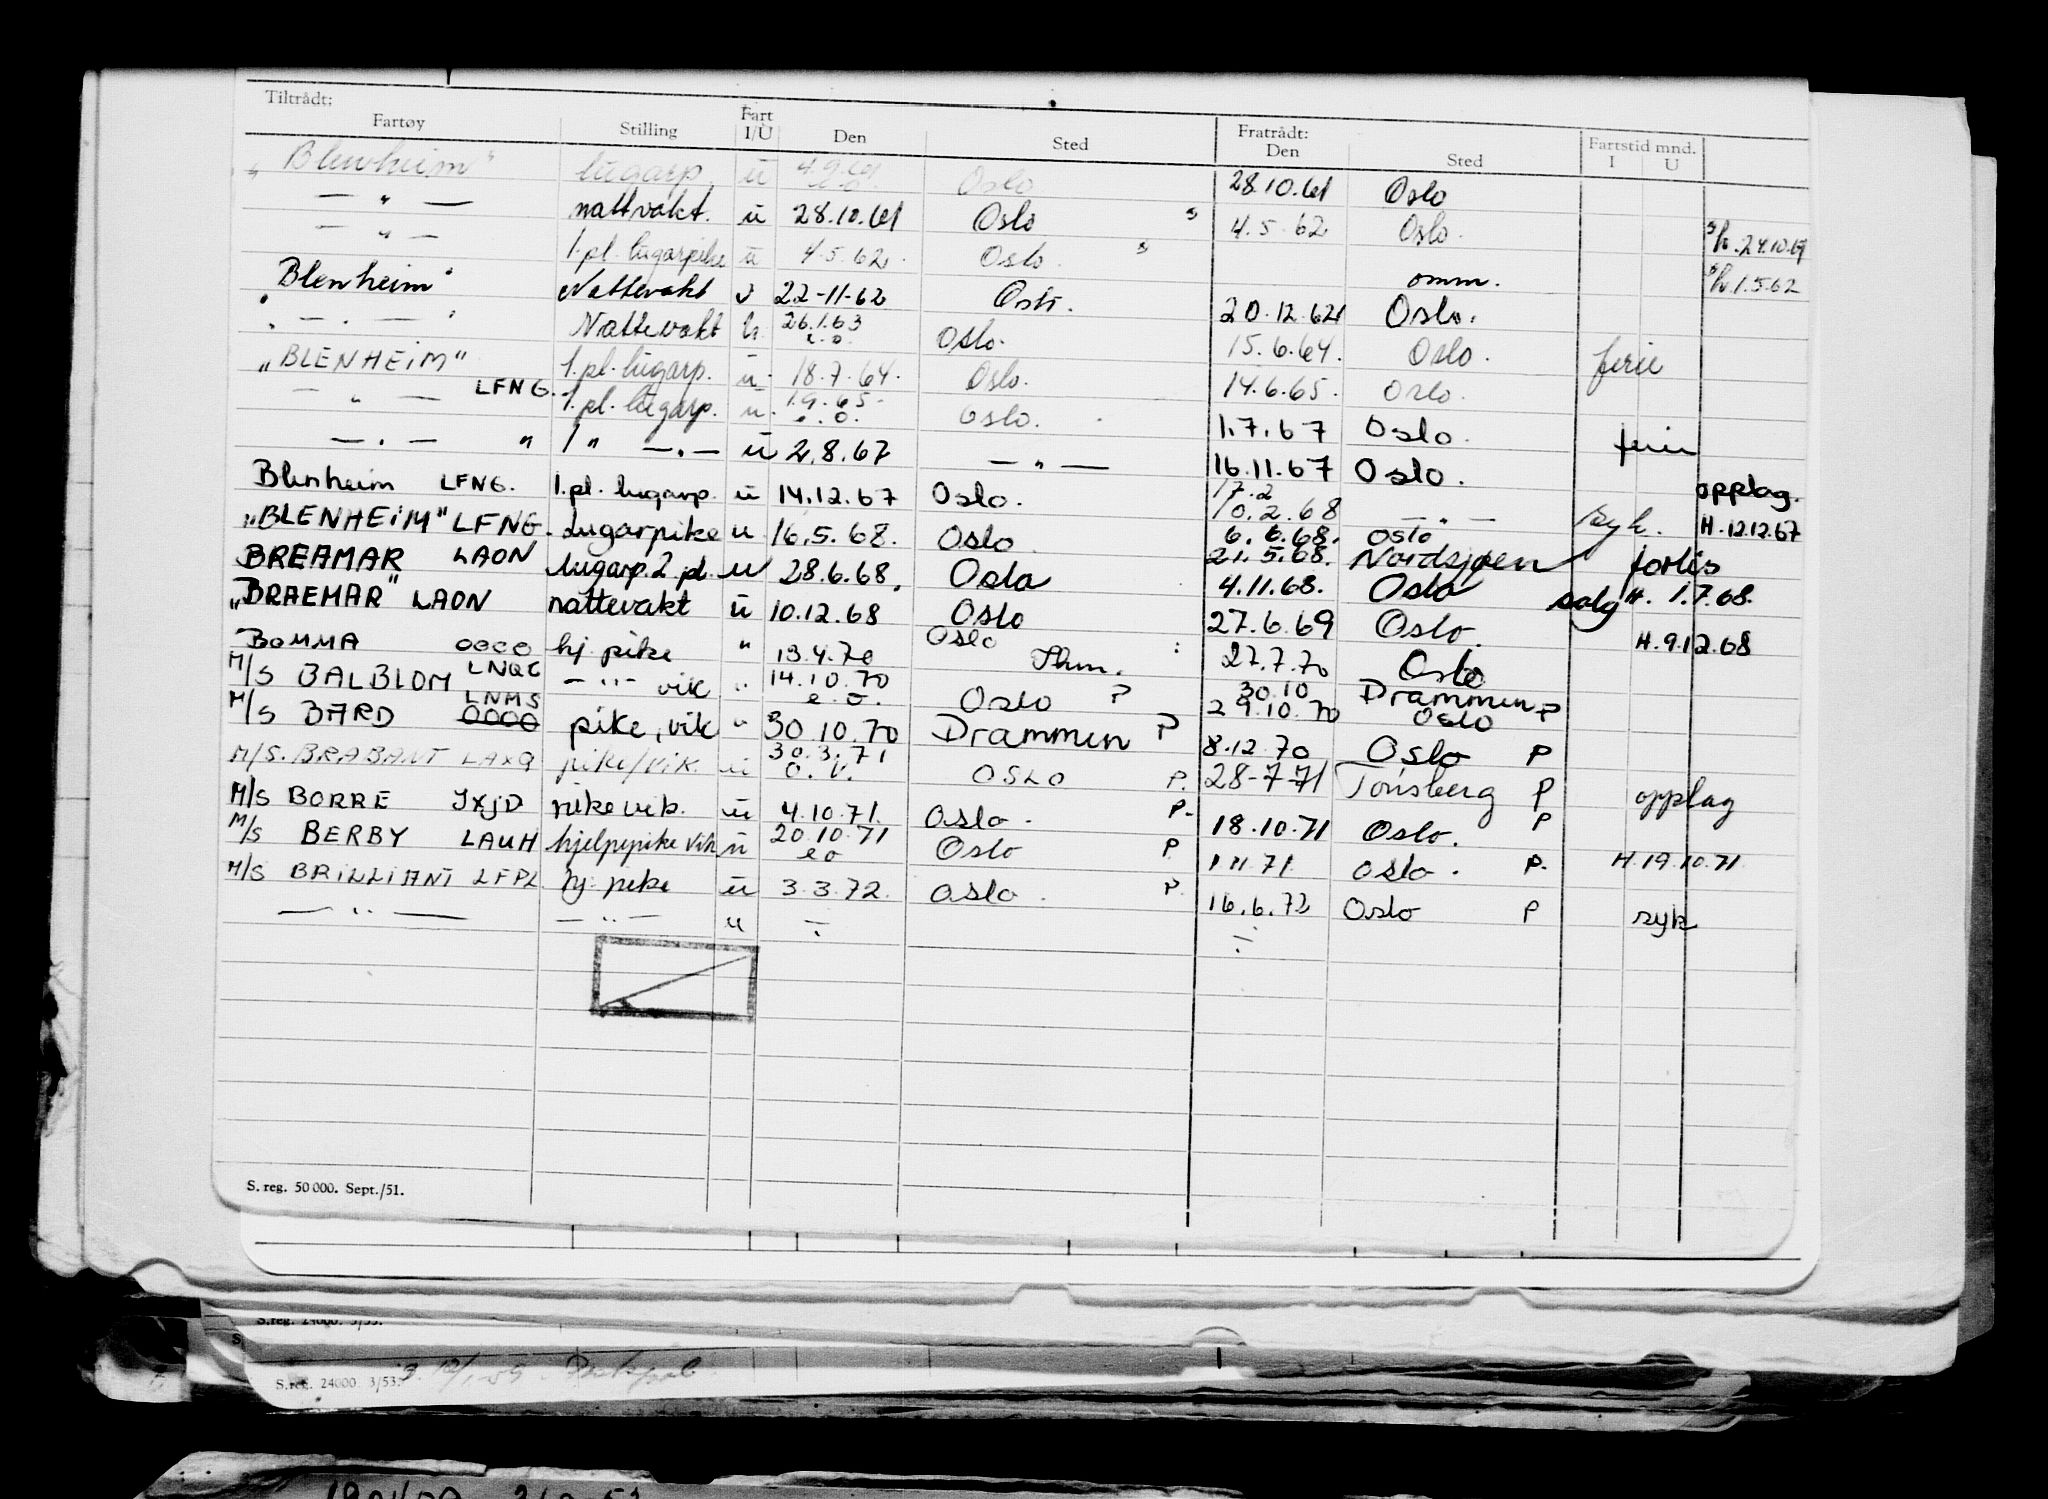 Tiltrådt: Fratrådt: Fartstid mnd.
Fartøy Stilling Fart I/U Den Sted Den Sted I U
"Blenheim" lugarp. u 4.9.61 e.o. Oslo 28.10.61 Oslo
— " — nattvakt. u 28.10.61 Oslo s 4.5.62 Oslo. h. 24.10.61
— " — 1.pl. lugarpike u 4.5.62. Oslo. s omm. h. 1.5.62
"Blenheim" Nattevakt u 22-11-62 Oslo. 20.12.62 Oslo.
" — . — " Nattevakt u. 26.1.63 e.o. Oslo. 15.6.64. Oslo. ferie
"BLENHEIM" 1.pl. lugarp. u. 18.7.64. Oslo. 14.6.65. Oslo.
— " — LFNG. 1.pl. lugarp. u. 1.9.65. e.o. Oslo. 1.7.67 Oslo. ferie
— . — " 1 " — . — u 2.8.67 — " — 16.11.67 Oslo. opplag.
Blenheim LFNG. 1.pl. lugarp. u 14.12.67 Oslo. 17.2 10.2.68 — " — syk. H. 12.12.67
"BLENHEIM" LFNG. Lugarpike u 16.5.68. Oslo 6.6.68. Oslo 21.5.68. Nordsjøen forlis
BREAMAR LAON lugarp. 2. pl. u 28.6.68. Oslo 4.11.68. Oslo salg H. 1.7.68.
"BRAEMAR" LAON nattevakt u 10.12.68 Oslo 27.6.69 Oslo. H. 9.12.68
BOMMA OOCO hj. pike " 13.4.70 Oslo 27.7.70 Oslo
M/S BALBLOM LNQC — " — vik " 14.10.70 e.o. Oslo P 30.10 Drammen P 29.10.70 Oslo
M/S BARD LNMS OOOO pike, vik " 30.10.70 Drammen P 8.12.70 Oslo P
M/S. BRABANT LAXQ pike/vik. u 30.3.71 o.v. OSLO P. 28-7-71 Tønsberg P opplag
M/S BORRE JXJD pike vik. u 4.10.71. Oslo. P. 18.10.71 Oslo. P
M/S BERBY LAUH hjelpepike vik u 20.10.71 eo Oslo P 1.11.71. Oslo. P. H. 19.10.71
M/S BRILLIANT LFPL hj. pike u 3.3.72. Oslo. P. 16.6.72 Oslo P syk
— " — — " — u ÷ ÷
S. reg. 50 000. Sept./51.
S. reg. 24000. 3/53.
S. reg. 24000 3/53.